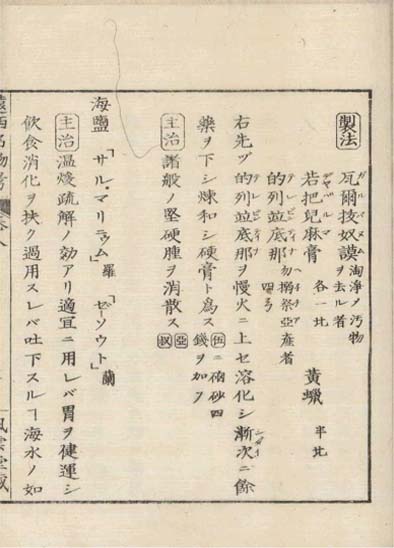 製法 瓦爾抜奴謨 淘浄メ汚物ヲ去ル者
若把児麻膏 各一比 黄蝋 半比
的列並底那 勿搦祭亜産者 四弓
右先ヅ的列並底那ヲ慢火ニ上セ溶化シ漸次ニ餘
藥ヲ下シ煉和シ硬膏ト為ス 伍ニ硇砂四錢ヲ加フ
主治 諸般ノ堅硬腫ヲ消散ス 亞 扠
海鹽 「サル・マリニウム」羅 「ゼーソウト」蘭
主治 温煖疏解ノ効アリ適宜ニ用レバ胃ヲ健運シ
飲食消化ヲ扶ク過用スレバ吐下スルヿ海水ノ如
遠西名物考 巻八
風雲堂蔵